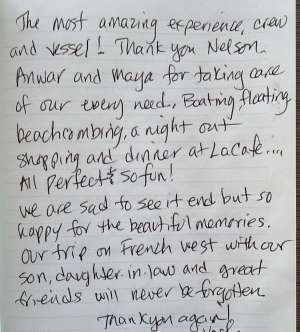 The most amazing experience, crew
and vessel! Thank you Nelson
Anwar and Maya for taking care
of our every need, Boating floating
beachcombing, a night out
shopping and dinner at La Cafe....
All perfect & so fun!
we are sad to see it end but so
happy for the beautiful memories.
our trip on French West with our
son, daughter-in-law and great
friends will never be forgotten
Thank you again!